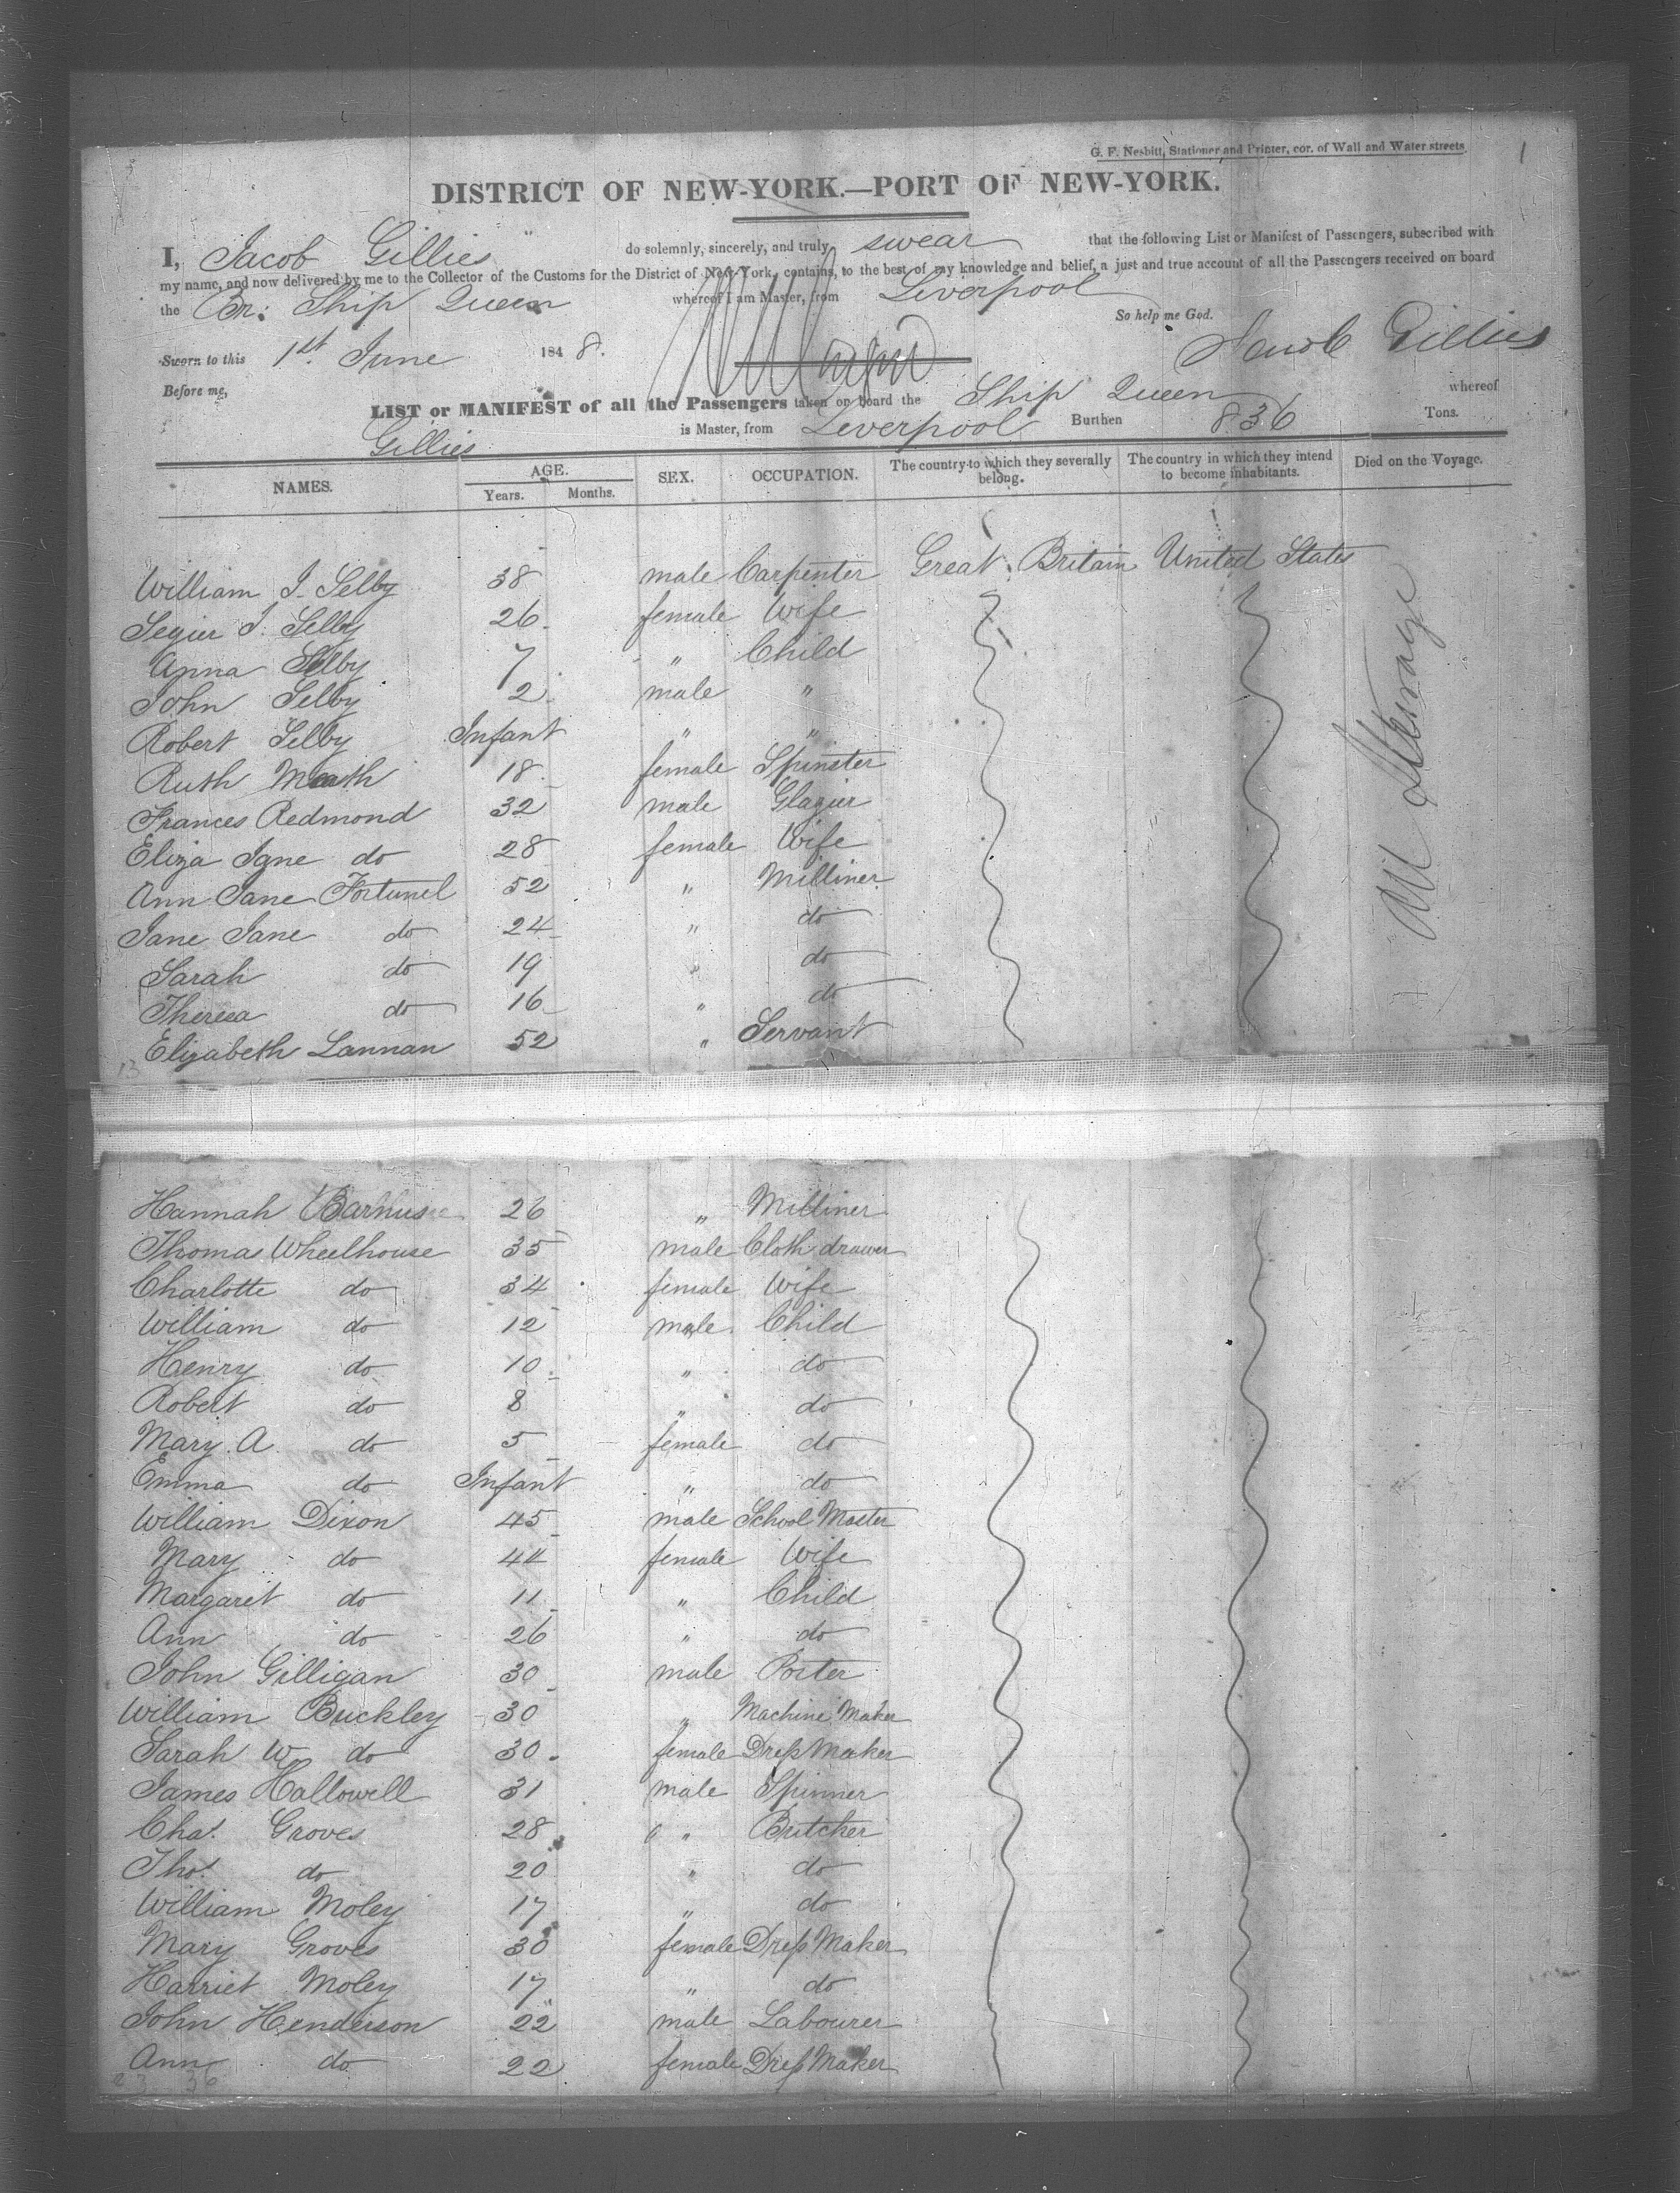 G. F. Nesbitt, Stationer and Printer, cor. of Wall and Water streets
1
DISTRICT OF NEW-YORK.—PORT OF NEW-YORK.
I, Jacob Gillies do solemnly, sincerely, and truly swear that the following List or Manifest of Passengers, subscribed with
my name, and now delivered by me to the Collector of the Customs for the District of New-York, contains, to the best of my knowledge and belief, a just and true account of all the Passengers received on board
the Br: Ship Queen whereof I am Master, from Liverpool
So help me God.
Sworn to this 1st June 1848.
Jacob Gillies
Before me,
LIST or MANIFEST of all the Passengers taken on board the Ship Queen whereof
Gillies is Master, from Liverpool Burthen 836 Tons.
NAMES. AGE. Years. Months. SEX. OCCUPATION. The country to which they severally belong. The country in which they intend to become inhabitants. Died on the Voyage.
William J. Selby 38 male Carpenter Great Britain United States
J. Selby 26 female Wife
Anna Selby 7 " Child
John Selby 2 male "
Robert Selby Infant " "
Ruth 18 female Spinster
Frances Redmond 32 male Glazier
Eliza Jane do 28 female Wife
Ann Jane Fortunel 52 " Milliner
Jane Jane do 24 " do
Sarah do 19 " do
Theresa do 16 " do
Elizabeth Lannan 52 " Servant
All Steerage
13
Hannah 26 " Milliner
Thomas Wheelhouse 35 male Cloth drawer
Charlotte do 34 female Wife
William do 12 male Child
Henry do 10 " do
Robert do 8 " do
Mary A do 5 female do
Emma do Infant " do
William Dixon 45 male School Master
Mary do 44 female Wife
Margaret do 11 " Child
Ann do 26 " do
John Gilligan 30 male Porter
William Buckley 30 " Machine Maker
Sarah W do 30 female Dress Maker
James Hallowell 31 male Spinner
Chas. Groves 28 " Butcher
Thos. do 20 " do
William Moley 17 " do
Mary Groves 30 female Dress Maker
Harriet Moley 17 " do
John Henderson 22 male Labourer
Ann do 22 female Dress Maker
23 36